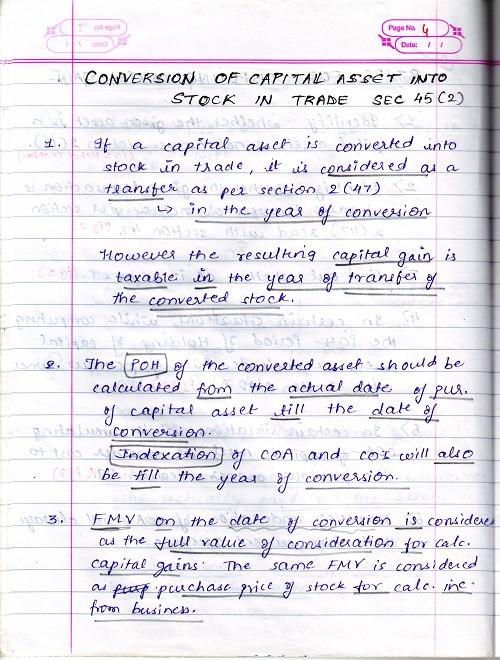 Page No. 4
Date: / /
CONVERSION OF CAPITAL ASSET INTO
STOCK IN TRADE SEC 45(2)
1. If a capital asset is converted into
stock in trade, it is considered as a
transfer as per section 2(47)
↳ in the year of conversion
However the resulting capital gain is
taxable in the year of transfer of
the converted stock.
2. The POH of the converted asset should be
calculated from the actual date of pur.
of capital asset till the date of
conversion.
Indexation of COA and COI will also
be till the year of conversion.
3. FMV on the date of conversion is considered
as the full value of consideration for calc.
capital gains. The same FMV is considered
as purchase price of stock for calc. inc.
from business.